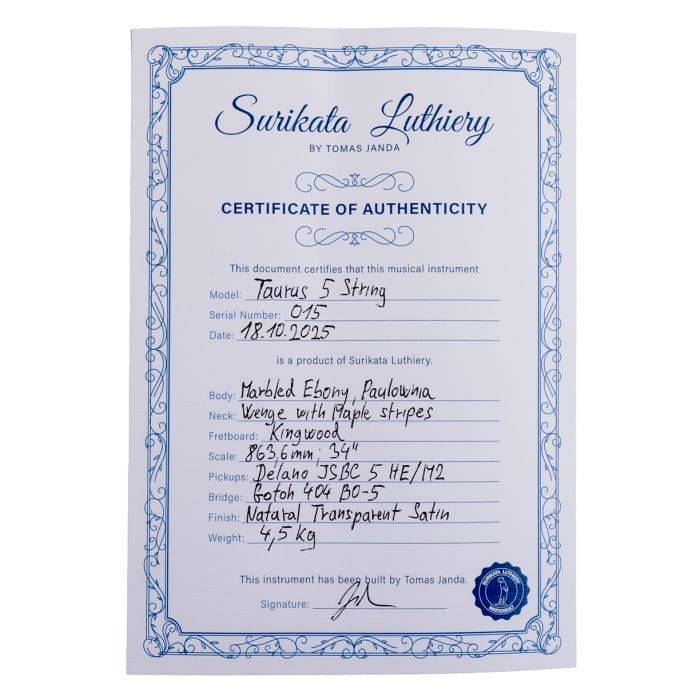 Surikata Luthiery
BY TOMAS JANDA
CERTIFICATE OF AUTHENTICITY
This document certifies that this musical instrument
Model: Taurus 5 String
Serial Number: 015
Date: 18.10.2025
is a product of Surikata Luthiery.
Body: Marbled Ebony, Paulownia
Neck: Wenge with Maple stripes
Fretboard: Kingwood
Scale: 863,6mm; 34"
Pickups: Delano JSBC 5 HE/M2
Bridge: Gotoh 404 BO-5
Finish: Natural Transparent Satin
Weight: 4,5 kg
This instrument has been built by Tomas Janda.
Signature:
SURIKATA LUTHIERY